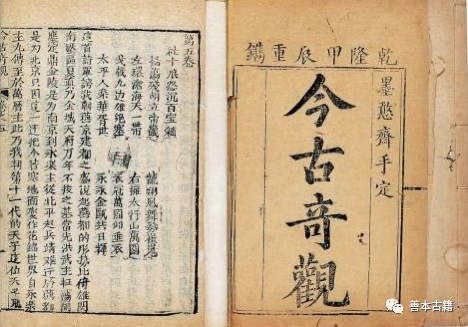 乾隆甲辰重鐫
墨憨齋手定
今古奇觀
第五卷
杜十娘怒沉百寶箱
掃蕩殘胡立帝畿 龍翔鳳舞勢崔嵬
左環滄海天一帶 右擁太行山萬圍
戈戟九邊雄絕塞 衣冠萬國仰垂衣
太平人樂華胥世 永永金甌共日輝
這首詩單誇我朝燕京建都之盛說起燕都的形勢北倚雄關
南壓區夏真乃金城天府萬年不拔之基當先洪武主掃蕩胡
塵定鼎金陵是為南京到永樂主從北平起兵靖難遷於燕都
是為北京只因這一遷把個苦寒地面變作花錦世界自永樂
主九傳至於萬曆主此乃我朝第十一代的天子這位天子
今古奇觀
善本古籍